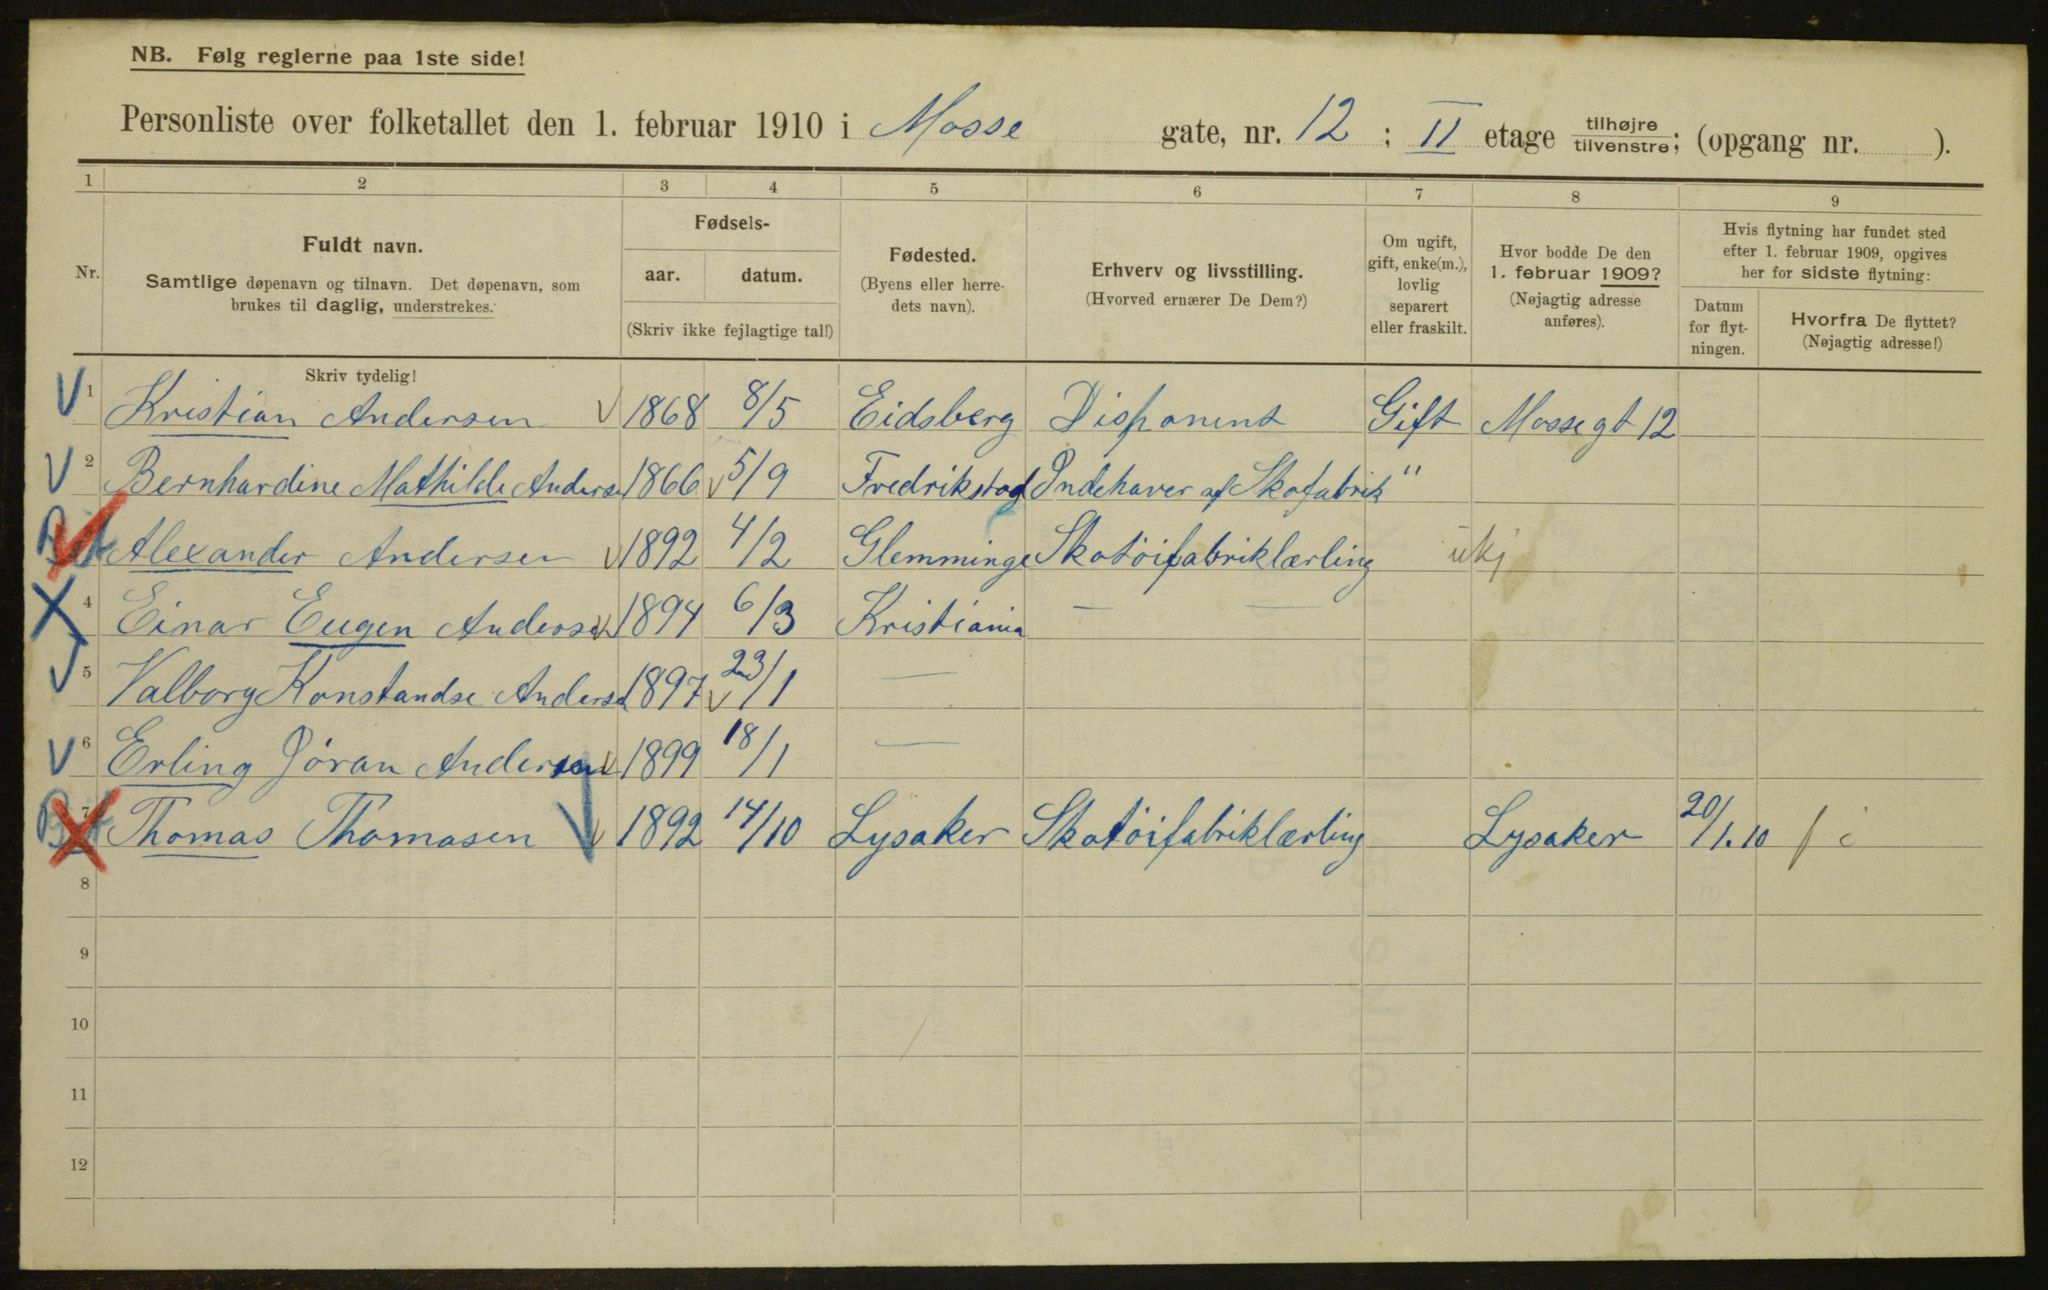 NB. Følg reglerne paa 1ste side!
Personliste over folketallet den 1. februar 1910 i Mosse gate, nr. 12 ; II etage tilhøjre tilvenstre; (opgang nr. ).
1 2 3 4 5 6 7 8 9
Nr.
Fuldt navn.
Samtlige døpenavn og tilnavn. Det døpenavn, som
brukes til daglig, understrekes.
Skriv tydelig!
Fødsels-
aar. datum.
(Skriv ikke fejlagtige tal!)
Fødested.
(Byens eller herre-
dets navn).
Erhverv og livsstilling.
(Hvorved ernærer De Dem?)
Om ugift,
gift, enke(m.),
lovlig
separert
eller fraskilt.
Hvor bodde De den
1. februar 1909?
(Nøjagtig adresse
anføres).
Hvis flytning har fundet sted
efter 1. februar 1909, opgives
her for sidste flytning:
Datum
for flyt-
ningen.
Hvorfra De flyttet?
(Nøjagtig adresse!)
1 Kristian Andersen 1868 8/5 Eidsberg Disponent Gift Mossegt 12
2 Bernhardine Mathilde Andersen 1866 5/9 Fredrikstad Indehaver af Skofabrik "
Alexander Andersen 1892 4/2 Glemminge Skotøifabriklærling ukj
4 Einar Eugen Andersen 1894 6/3 Kristiania — —
5 Valborg Konstandse Andersen 1897 23/1 —
6 Erling Jöran Andersen 1899 18/1 —
7 Thomas Thomasen 1892 14/10 Lysaker Skotöifabriklærling Lysaker 20/1.10
8
9
10
11
12